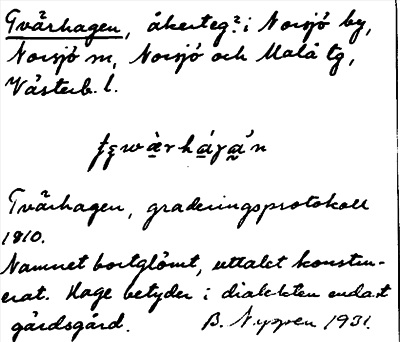 Tvärhagen, åkerteg? i Norsjö by,
Norsjö sn, Norsjö och Malå tg,
Västerb. l.
Tvärhagen, graderingsprotokoll
1810.
Namnet bortglömt, uttalet konstru-
erat. Hage betyder i dialekten endast
gärdsgård. B. Nygren 1931.